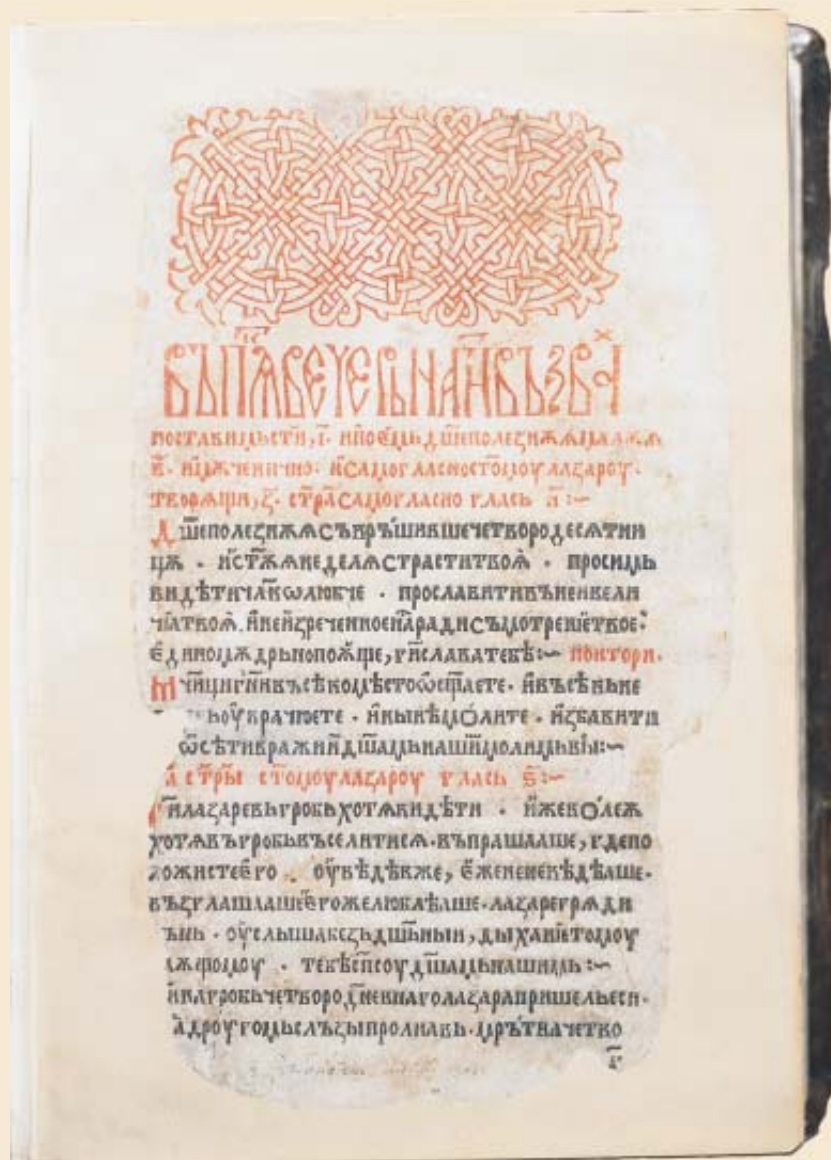 въпⷮѧвеꙋерънагн҃възваⷯ
поставимьсти, і. ипоемьдш҃еполезнѫѧцалѫѧ
в҃. имѫченично. исамогласност҃омоулазароу.
творѧщи, ꙁ҃. стр҃асамогласно гласъ а҃:~
Дш҃еполезнѫѧсъврьшившечетвородесѧтни
цѫ . ист҃ѫѧнеделѧстраститвоѧ . просимь
видѣтичлк҃ѡлюбче . прославитивъненвели
чїатвоѧ. инеизреченноен҃арадисъмотренїетвое:
единомѫдрьнопоѫще, гн҃славатебѣ:~ повтори.
мч҃ницигн҃ивъсѣкомѣстоѡсщ҃аете. ивъсѣкьне
ноуврачюете . инынѣмолите . избавити
ѿсѣтивражїидш҃амьнашимьмолимьвы:~
а стр҃ы ст҃омоулазароу гласъ ѕ҃:~
гн҃илазаревьгробьхотѧвидѣти . ижеволеѫ
хотѧвъгробьвъселитисѧ. въпрашааше, гдепо
ложистеего . оувѣдѣвже, ежененевѣдѣаше.
възглашаашеегожелюблѣаше. лазарегрѧди
вънь . оуслышавбездш҃ьныи, дыханїетомоу
. тебѣсп҃соудш҃амьнашимь:~
инагробьчетвородневнаголазарапришельеси.
адроугомьслъзыпролїавь. мрътвачетво
в҃